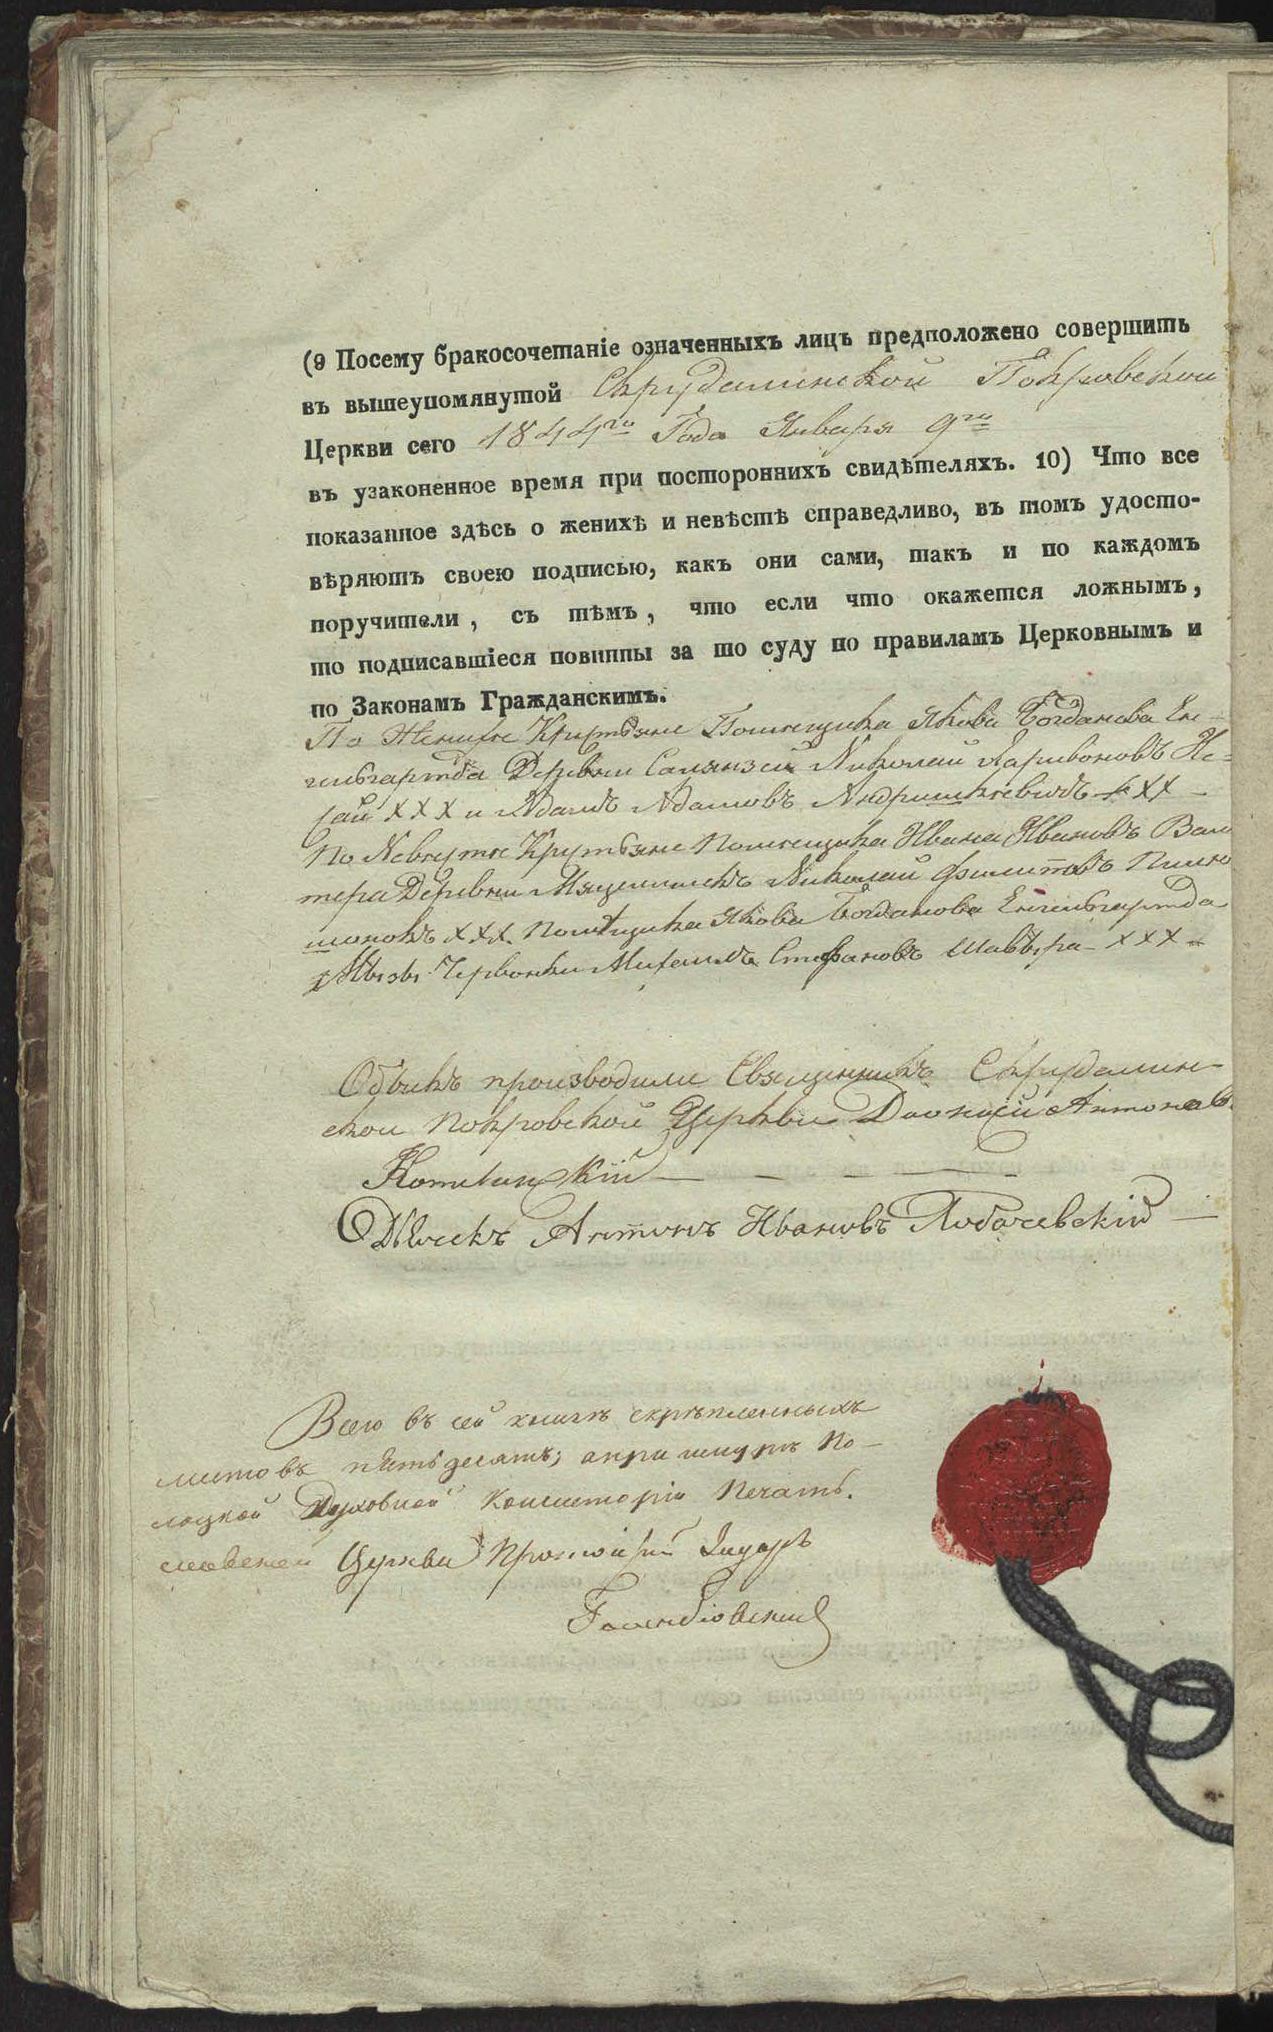 (9 Посему бракосочетаніе означенныхъ лицъ предположено совершить
въ вышеупомянутой Скрудалинской Покровской
Церкви сего 1844го Года Января 9го
въ узаконенное время при постороннихъ свидѣтеляхъ. 10) Что все
показанное здѣсь о женихѣ и невѣстѣ справедливо, въ томъ удосто-
вѣряютъ своею подписью, какъ они сами, такъ и по каждомъ
поручители, съ тѣмъ, что если что окажется ложнымъ,
то подписавшіеся повинны за то суду по правиламъ Церковнымъ и
по Законамъ Гражданскимъ.
По Женихе Крестьяне Помещика Якова Богданова Ен-
гельгартда Деревни Николай Ларивоновъ
ХХХ и Адамъ Адамовъ ХХХ
По Невесте Крестьяне Помещика Ивана Ивановъ Валь
тера Деревни Николай Филиповъ
ХХХ. Помещика Якова Богданова Енгельгартда
Мызы Червонки Михаилъ Стефановъ Шавъра ХХХ
Обыскъ производили Священникъ Скрудалин-
ской Покровской Церкви Антоновъ
Дьячекъ Антонъ Ивановъ Лобачевскій
Всего въ сей книгѣ скрѣпленныхъ
листовъ пятьдесятъ; а при шнурѣ По-
лоцкой Духовной Консисторіи Печать.
Церкви Протоіерей